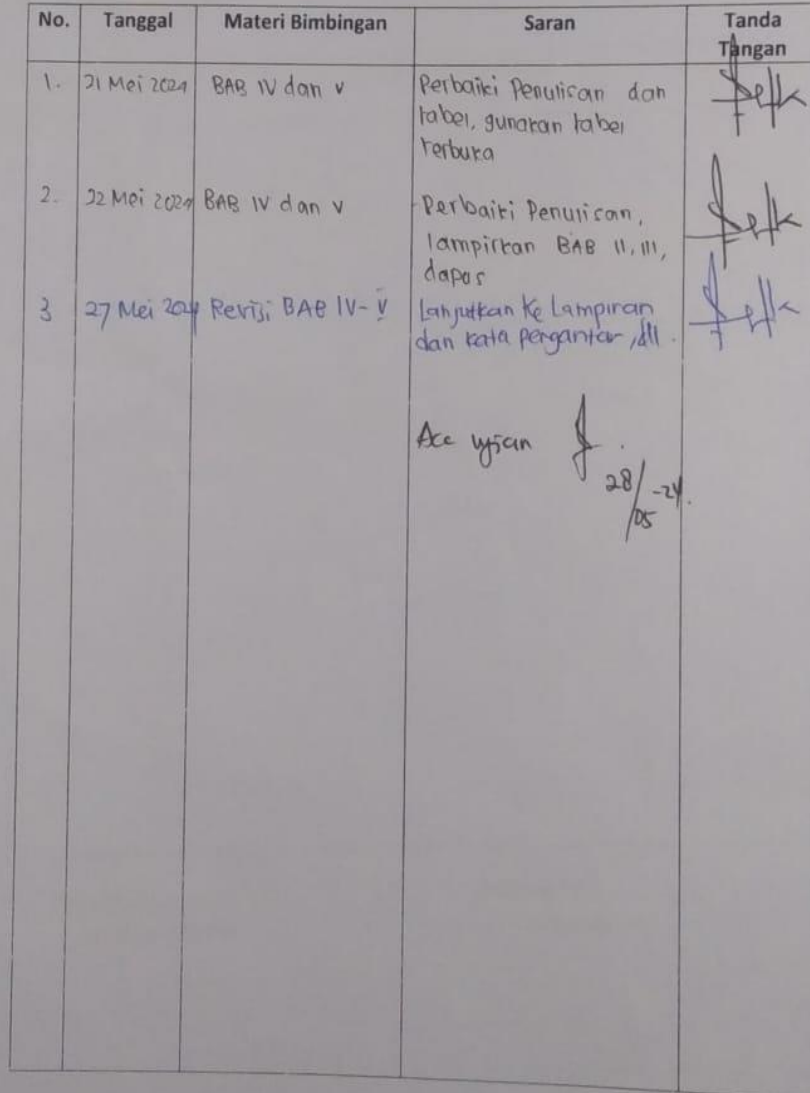 No. Tanggal Materi Bimbingan Saran Tanda Tangan
1. 21 Mei 2024 BAB IV dan V Perbaiki Penulisan dan
tabel, gunakan tabel
terbuka
2. 22 Mei 2024 BAB IV dan V Perbaiki Penulisan,
lampirkan BAB II, III,
dapus
3 27 Mei 2024 Revisi BAB IV - V Lanjutkan Ke Lampiran
dan kata pengantar, dll.
Acc ujian
28/05 -24.